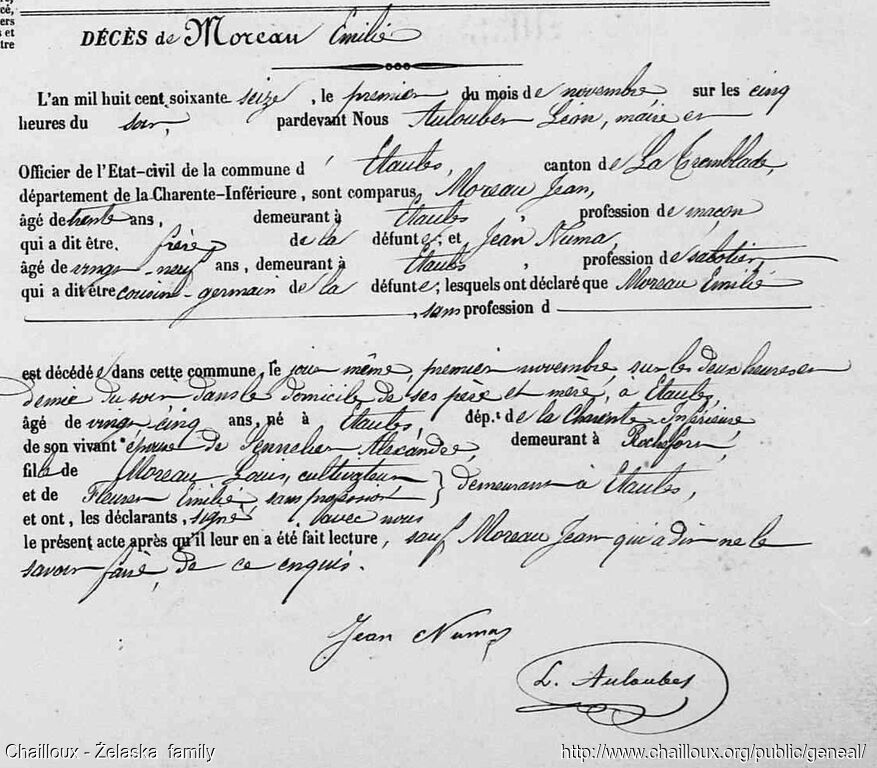 cé,
ers
s et
tre
DÉCÈS de Moreau Emilie
L'an mil huit cent soixante seize, le premier du mois de novembre sur les cinq
heures du soir, pardevant Nous Auloubes Léon, maire et
Officier de l'Etat-civil de la commune d' Etaules, canton de La Tremblade,
département de la Charente-Inférieure, sont comparus Moreau Jean,
âgé de trente ans, demeurant à Etaules, profession de maçon
qui a dit être, frère de la défunte; et Jean Numa,
âgé de vingt-neuf ans, demeurant à Etaules, profession de sabotier,
qui a dit être cousin-germain de la défunte; lesquels ont déclaré que Moreau Emilie
, sans profession d
est décédée dans cette commune, le jour même, premier novembre, sur les deux heures et
demie du soir dans le domicile de ses père et mère, à Etaules,
âgé de vingt-cinq ans, né à Etaules, dép.t de la Charente-Inférieure
de son vivant épouse de Alexandre, demeurant à Rochefort,
fille de Moreau Louis, cultivateur
et de Emilie, sans profession } demeurant à Etaules,
et ont, les déclarants, signé avec nous
le présent acte après qu'il leur en a été fait lecture, sauf Moreau Jean qui a dit ne le
savoir faire, de ce enquis.
Jean Numa
L. Auloubes
Chailloux - Żelaska family
http://www.chailloux.org/public/geneal/